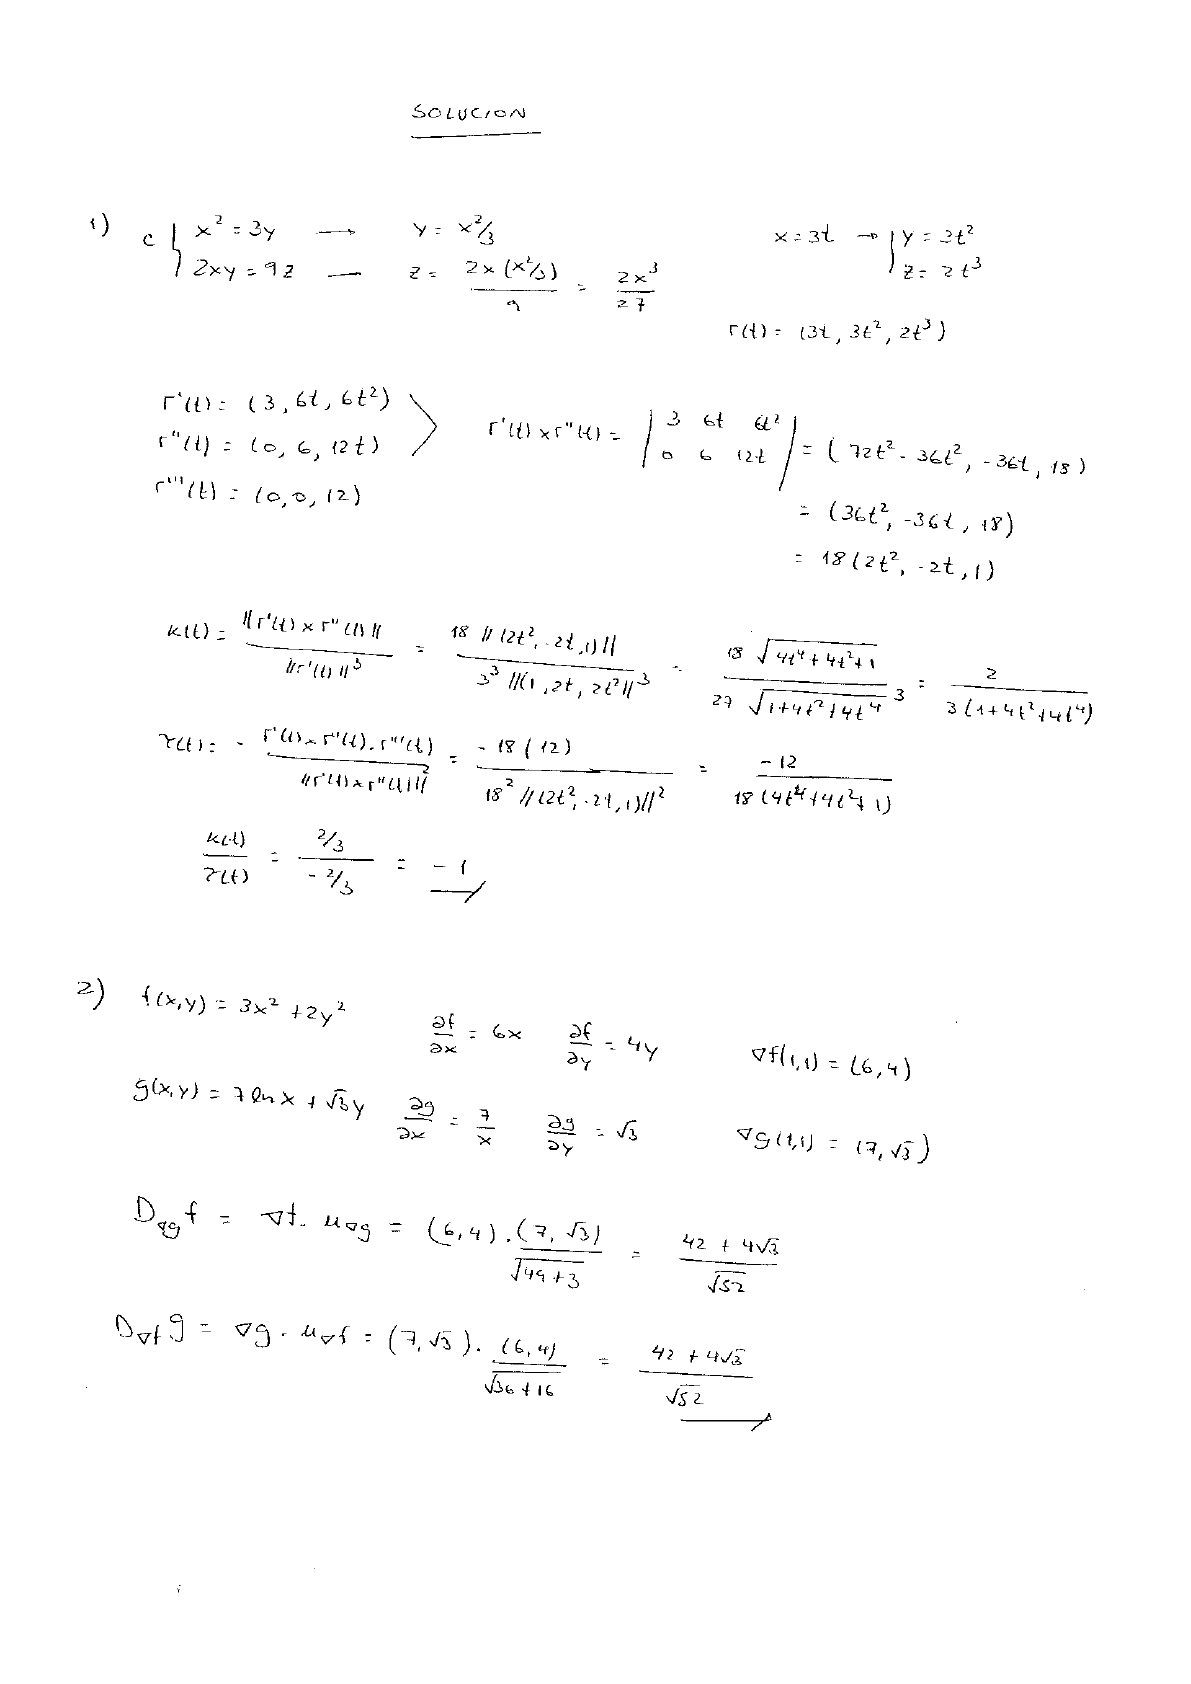 SOLUCION
1) C { x² = 3y → y = x²/3    x = 3t → { y = 3t²
2xy = 9z — z = 2x(x²/3)/9 = 2x³/27    z = 2t³
r(t) = (3t, 3t², 2t³)
r'(t) = (3, 6t, 6t²)
r''(t) = (0, 6, 12t) > r'(t) x r''(t) = | 3 6t 6t² ; 0 6 12t | = (72t² - 36t², -36t, 18)
r'''(t) = (0, 0, 12)
= (36t², -36t, 18)
= 18(2t², -2t, 1)
k(t) = ||r'(t) x r''(t)|| / ||r'(t)||³ = 18 ||(2t², -2t, 1)|| / 3³ ||(1, 2t, 2t²||³ = 18 √(4t⁴ + 4t² + 1) / 27 √(1 + 4t² + 4t⁴)³ = 2 / 3(1 + 4t² + 4t⁴)
τ(t) = - r'(t) x r''(t) . r'''(t) / ||r'(t) x r''(t)||² = -18(12) / 18² ||(2t², -2t, 1)||² = -12 / 18(4t⁴ + 4t² + 1)
k(t)/τ(t) = 2/3 / -2/3 = -1
2) f(x,y) = 3x² + 2y²    ∂f/∂x = 6x    ∂f/∂y = 4y    ∇f(1,1) = (6,4)
g(x,y) = 7 ln x + √3 y    ∂g/∂x = 7/x    ∂g/∂y = √3    ∇g(1,1) = (7, √3)
D∇g f = ∇f · u∇g = (6,4) . (7, √3)/√(49 + 3) = 42 + 4√3 / √52
D∇f g = ∇g · u∇f = (7, √3) . (6,4)/√(36 + 16) = 42 + 4√3 / √52